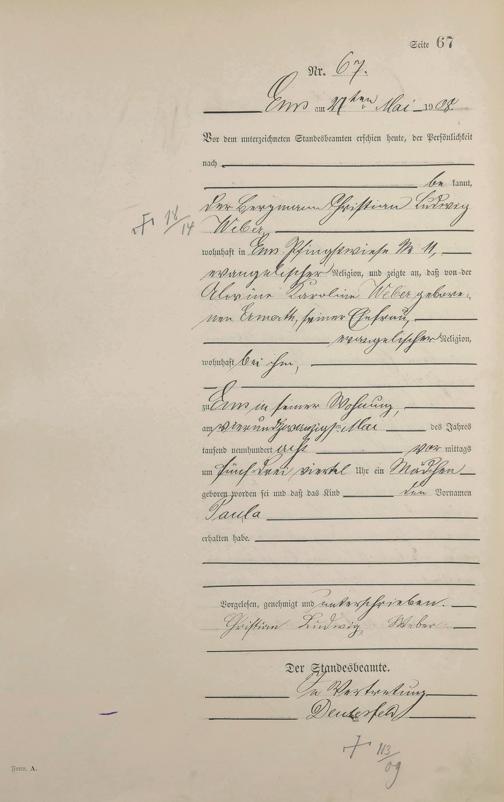 Seite 67
Nr. 67.
Ems am 27ten Mai 1908.
Vor dem unterzeichneten Standesbeamten erschien heute, der Persönlichkeit
nach
be kannt,
der Bergmann Christian Ludwig
Weber,
wohnhaft in Ems Pfingstwiese № 11,
evangelischer Religion, und zeigte an, daß von der
Alwine Karoline Weber gebore-
nen, seiner Ehefrau,
evangelischer Religion,
wohnhaft bei ihm,
zu Ems in seiner Wohnung,
am vierundzwanzigsten Mai des Jahres
tausend neunhundert acht vor mittags
um fünf drei viertel Uhr ein Mädchen
geboren worden sei und daß das Kind den Vornamen
Paula
erhalten habe.
Vorgelesen, genehmigt und unterschrieben.
Christian Ludwig Weber
Der Standesbeamte.
In Vertretung
+ 18/14
+ 113/09
Form. A.